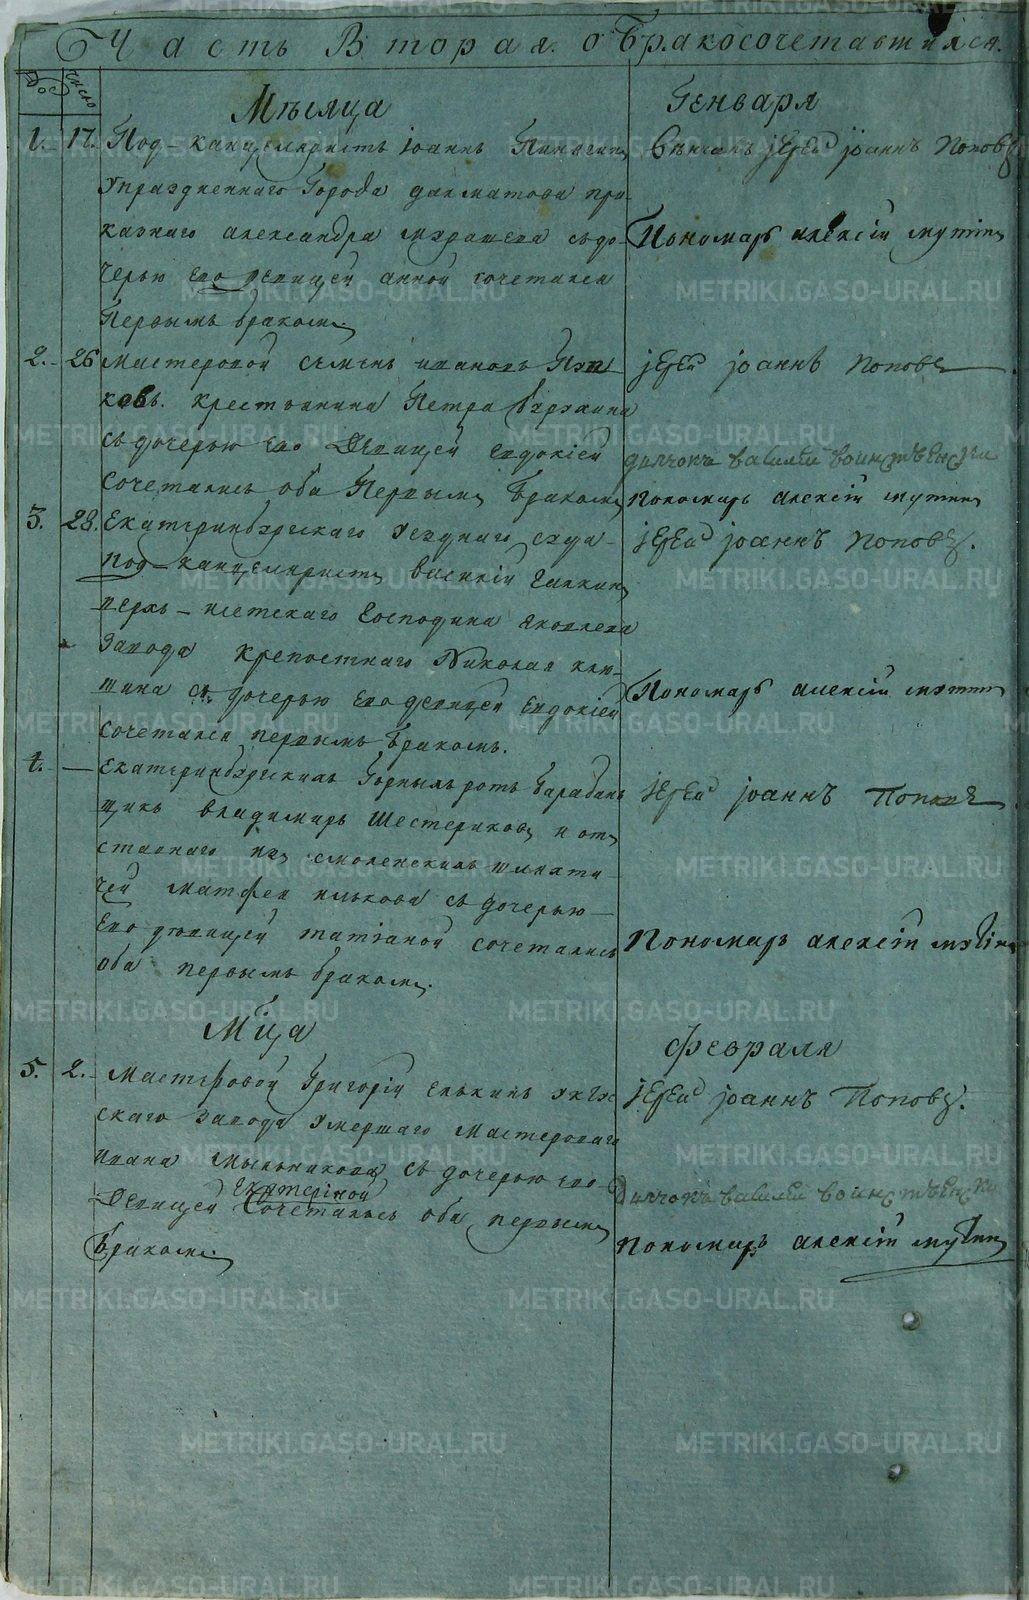 Часть Вторая о Бракосочетавшихся.
число
Мѣсяца Генваря
1. 17. Под-канцеляристъ Іоаннъ
Упраздненнаго Города далматова при-
казнаго александра съ до-
черью его девицей анной сочетался
Первымъ бракомъ
Вѣнчалъ іерей іоаннъ Поповъ
Пономарь алексій мутин
2. 26 Мастеровой Съменъ ивановъ
ковъ. крестьянина Петра
съ дочерью его Девицей евдокіей
Сочетались оба Первымъ бракомъ
іерей іоаннъ Поповъ
диячокъ василіи воинственски
пономарь алексій мутин
3. 28. Екатеринбургскаго уезднаго суда
под-канцеляристъ василій Галкинъ
верхъ-исетскаго Господина яковлева
Завода крепостнаго Николая клю-
шина съ дочерью его девицей Евдокіей
сочетался первымъ бракомъ.
іерей іоаннъ Поповъ.
Пономарь алексій мутин
4. — Екатеринбургскихъ Горныхъ ротъ барабан
щикъ владимиръ Шестериковъ и от
ставнаго изъ смоленскихъ шляхти-
чей матфея илькова съ дочерью
Его девицей татіаной сочетались
оба первымъ бракомъ.
іерей іоаннъ Поповъ
Пономарь алексій мутин
Мца Февраля
5. 2. Мастеровой Григорій елькинъ уктус
скаго завода умершаго мастероваго
ивана мыльникова съ дочерью его
Екатериной
Девицей Сочетались оба первымъ
бракомъ.
іерей іоаннъ Поповъ.
диячокъ василіи воинственски
пономарь алексій мутин
METRIKI.GASO-URAL.RU